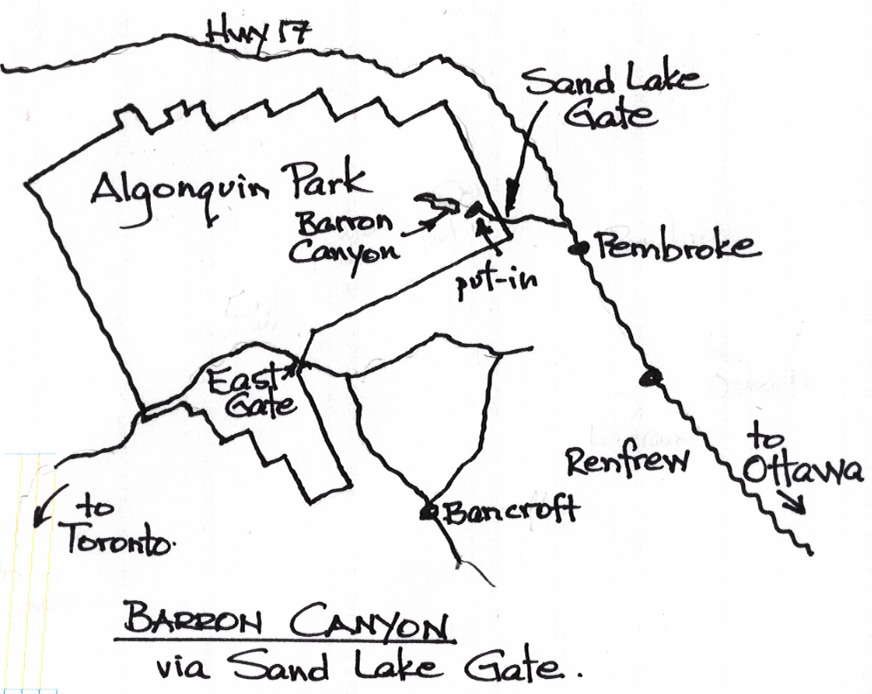 Hwy 17
Sand Lake
Gate
Algonquin Park
Barron
Canyon
put-in
Pembroke
East
Gate
Renfrew
to
Ottawa
Bancroft
to
Toronto.
BARRON CANYON
via Sand Lake Gate.